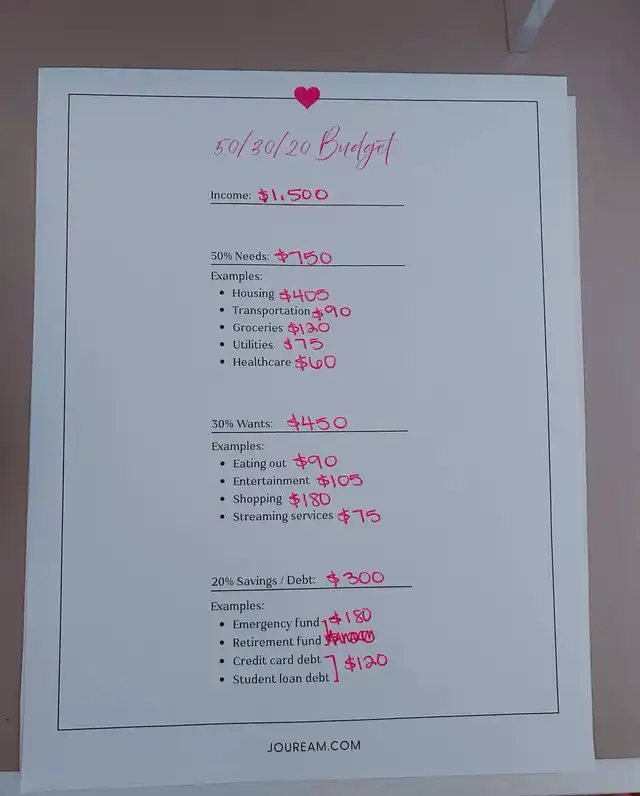 50/30/20 Budget
Income: $1,500
50% Needs: $750
Examples:
• Housing $405
• Transportation $90
• Groceries $120
• Utilities $75
• Healthcare $60
30% Wants: $450
Examples:
• Eating out $90
• Entertainment $105
• Shopping $180
• Streaming services $75
20% Savings / Debt: $300
Examples:
• Emergency fund $180
• Retirement fund
• Credit card debt $120
• Student loan debt
JOUREAM.COM